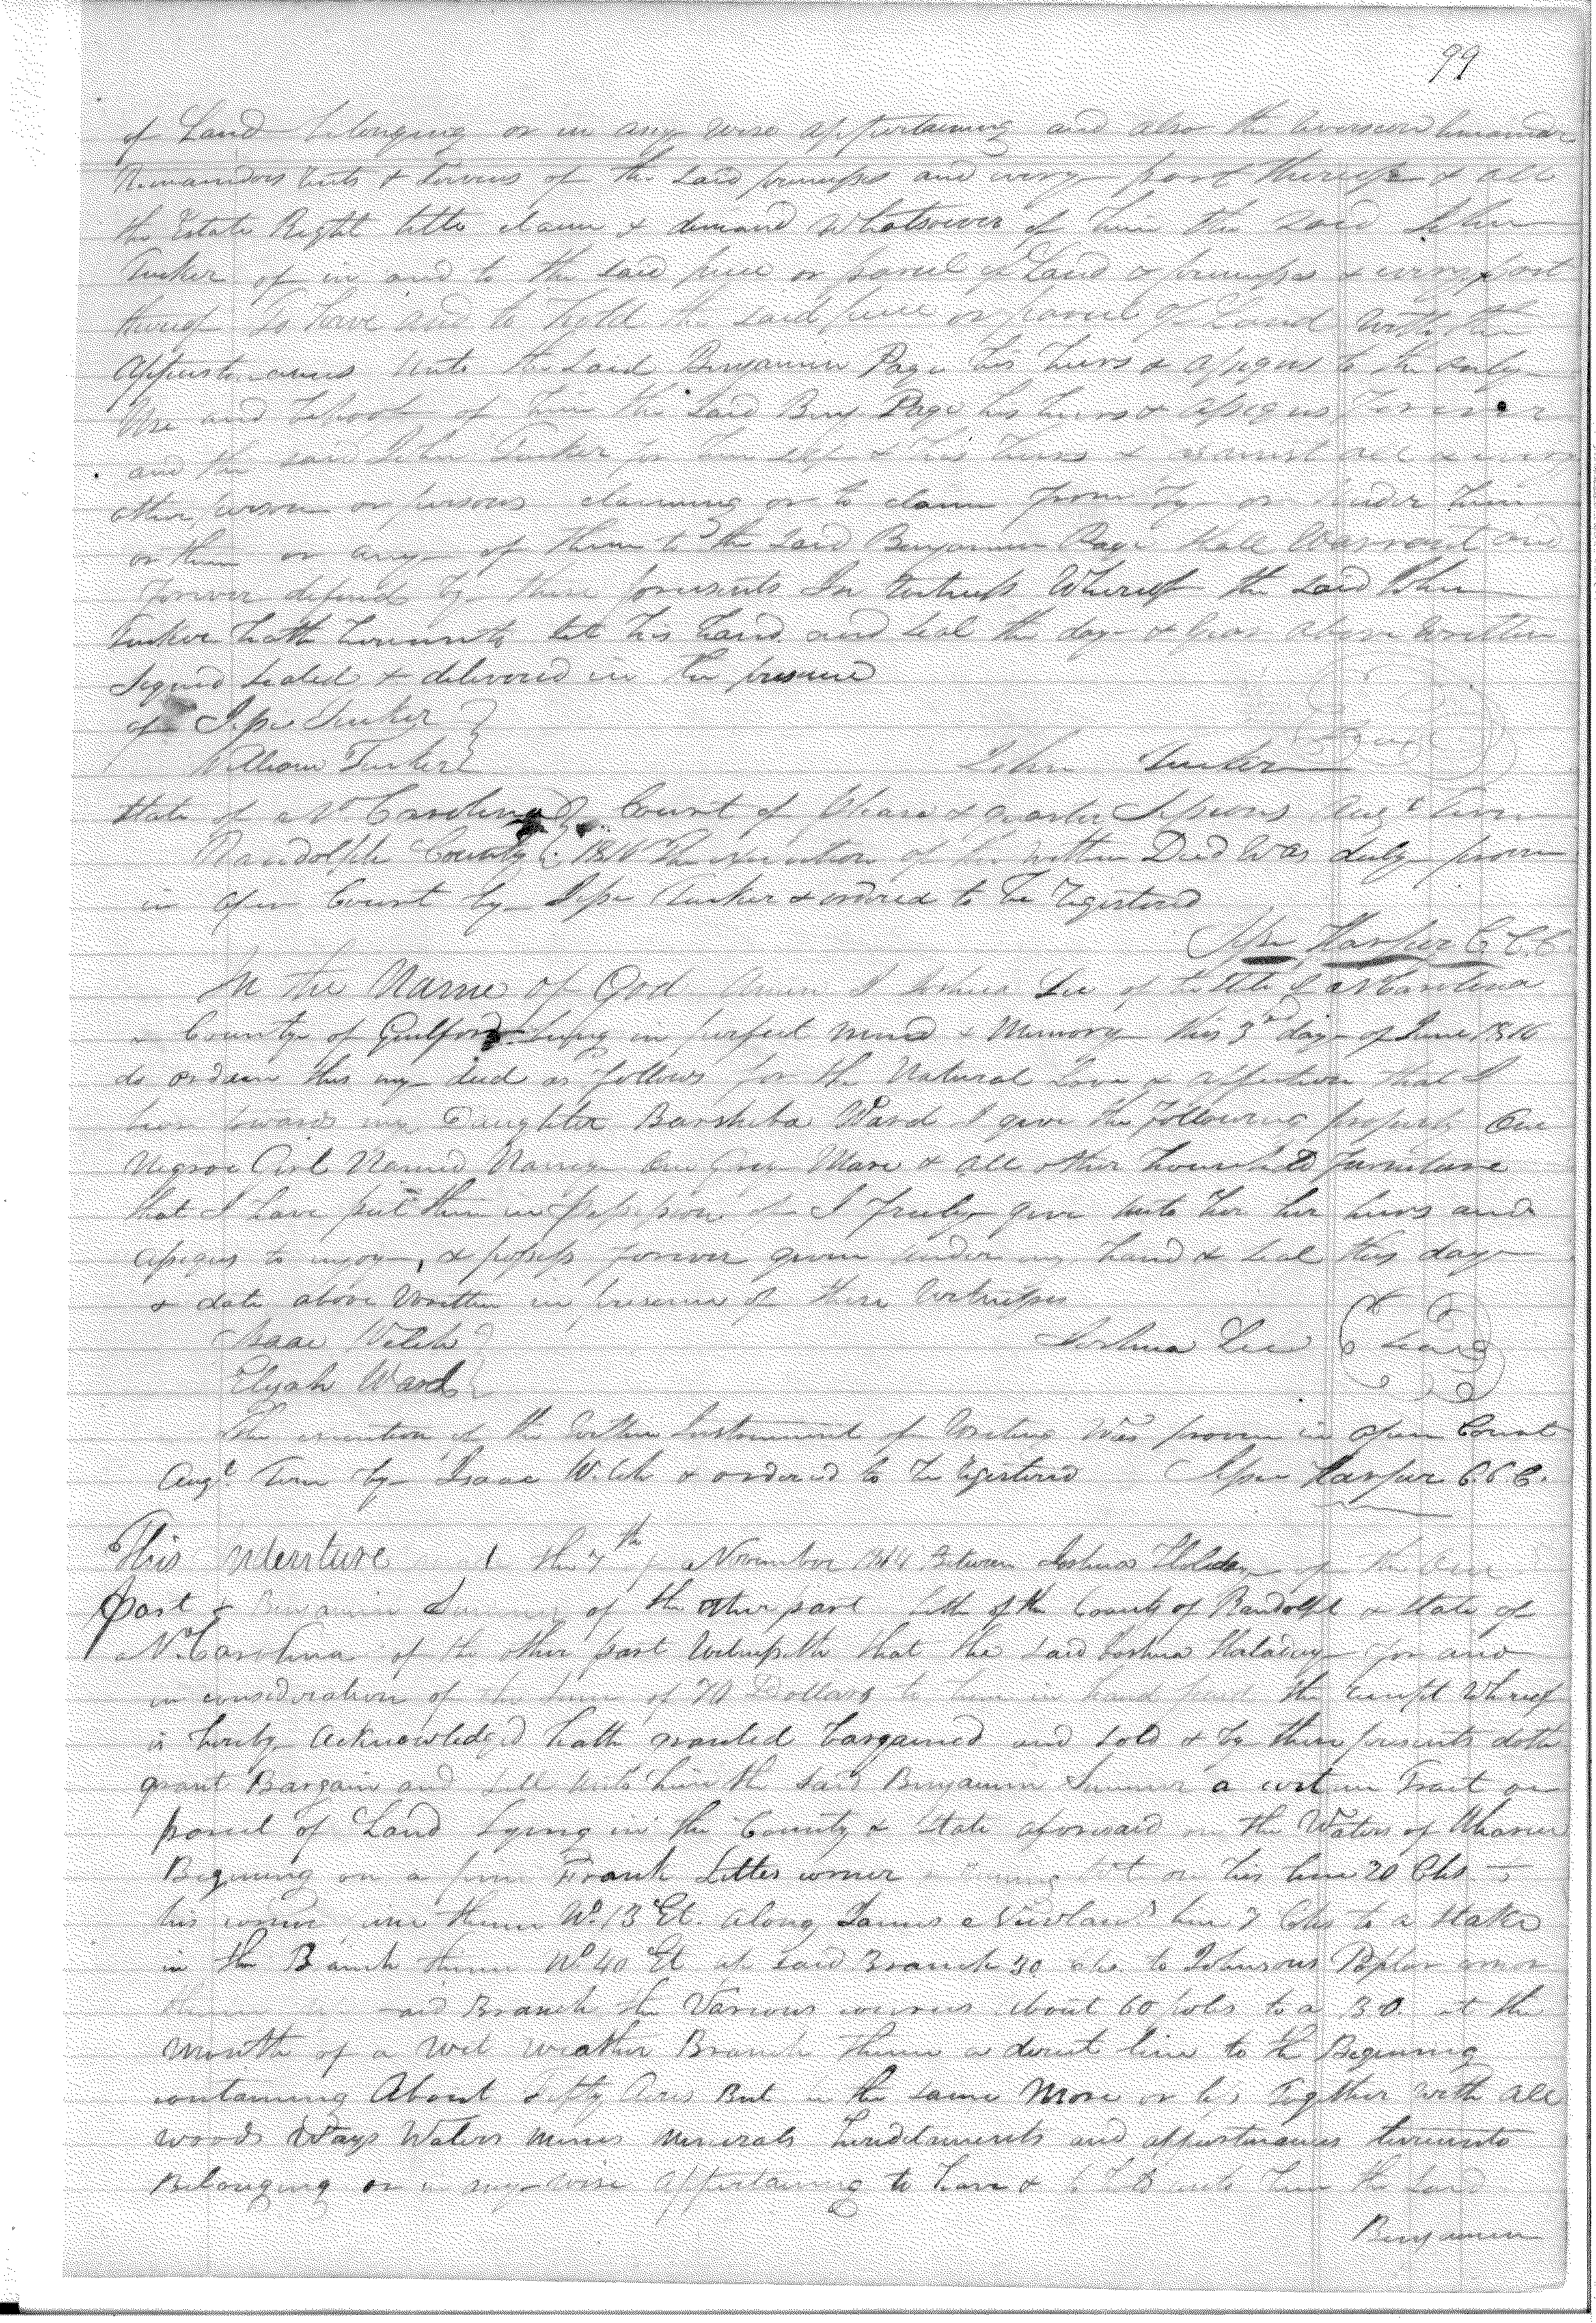 99
of Land belonging or in any wise appertaining and also the Reversion
Remainders Rents & Services of the said premises and every part thereof & all
the Estate Right title claim & demand Whatsoever of him the said John
Tucker of in and to the said piece or parcel of Land & premises & every part
thereof To have and to hold the said piece or parcel of Land with the
Appurtenances unto the said Benjamin Page his heirs & assigns to the only
Use and behoof of him the said Benj Page his heirs & assigns Forever
and the said John Tucker for him self & his heirs & against all & every
other person or persons claiming or to claim from by or under him
or them or any of them to the said Benjamin Page shall Warrant and
Forever defend by these presents In Witness Whereof the said John
Tucker hath hereunto set his hand and seal the day & year above written
Signed sealed & delivered in the presence
of Jesse Tucker
William Tucker
John Tucker Seal
State of No Carolina Court of Pleas & quarter Sessions Augt Term
Randolph County The execution of the within Deed Was duly proven
in open Court by Jesse Tucker & ordered to be Registered
Jesse Harper C.C.C.
In the Name of God Amen I Joshua Lee of the State of N Carolina
& County of Guilford being in perfect mind & Memory this 3rd day of June 1816
do ordain this my deed as follows for the Natural Love & affection that I
bear towards my Daughter Barsheba Ward I give the Following property One
Negroe Girl Named Nancy One Grey Mare & all other household Furniture
that I have put them in Possession of I Freely give unto her her heirs and
assigns to injoy & possess forever given under my hand & seal this day
& date above Written in presence of these Witnesses
Isaac Welch
Joshua Lee Seal
Elijah Ward
The execution of the within Instrument of Writing Was proven in open Court
Augt Term by Isaac Welch & ordered to be Registered Jesse Harper C.C.C.
This Indenture the 7th of November Between Joshua Holaday of the One
part & Benjamin of the other part both of the County of Randolph & State of
N. Carolina of the other part Witnesseth that the said Joshua Holaday for and
in consideration of the sum of 70 Dollars to him in hand paid the receipt Whereof
is hereby Acknowledged hath granted bargained and sold & by these presents doth
grant Bargain and sell unto him the said Benjamin a certain Tract or
parcel of Land Lying in the County & State aforesaid on the Waters of Uharie
Begining on a pine Frank corner on his line 20 Chs to
his corner thence No 13 Et. along James line 7 Chs to a stake
in the Branch thence No 40 Et up said Branch 30 chs. to Johnsons Poplar corner
thence said Branch the Various courses about 60 pols to a B O at the
mouth of a wet weather Branch thence a direct line to the Begining
containing About Fifty Acres But the same More or less Together with all
woods Ways Waters mines minerals hereditaments and appurtenances thereunto
Belonging or in any wise appertaining to have & to hold unto him the said
Benjamin